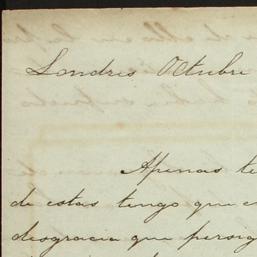 Londres Octubre
Apenas te
de estas tengo que e
desgracia que persig